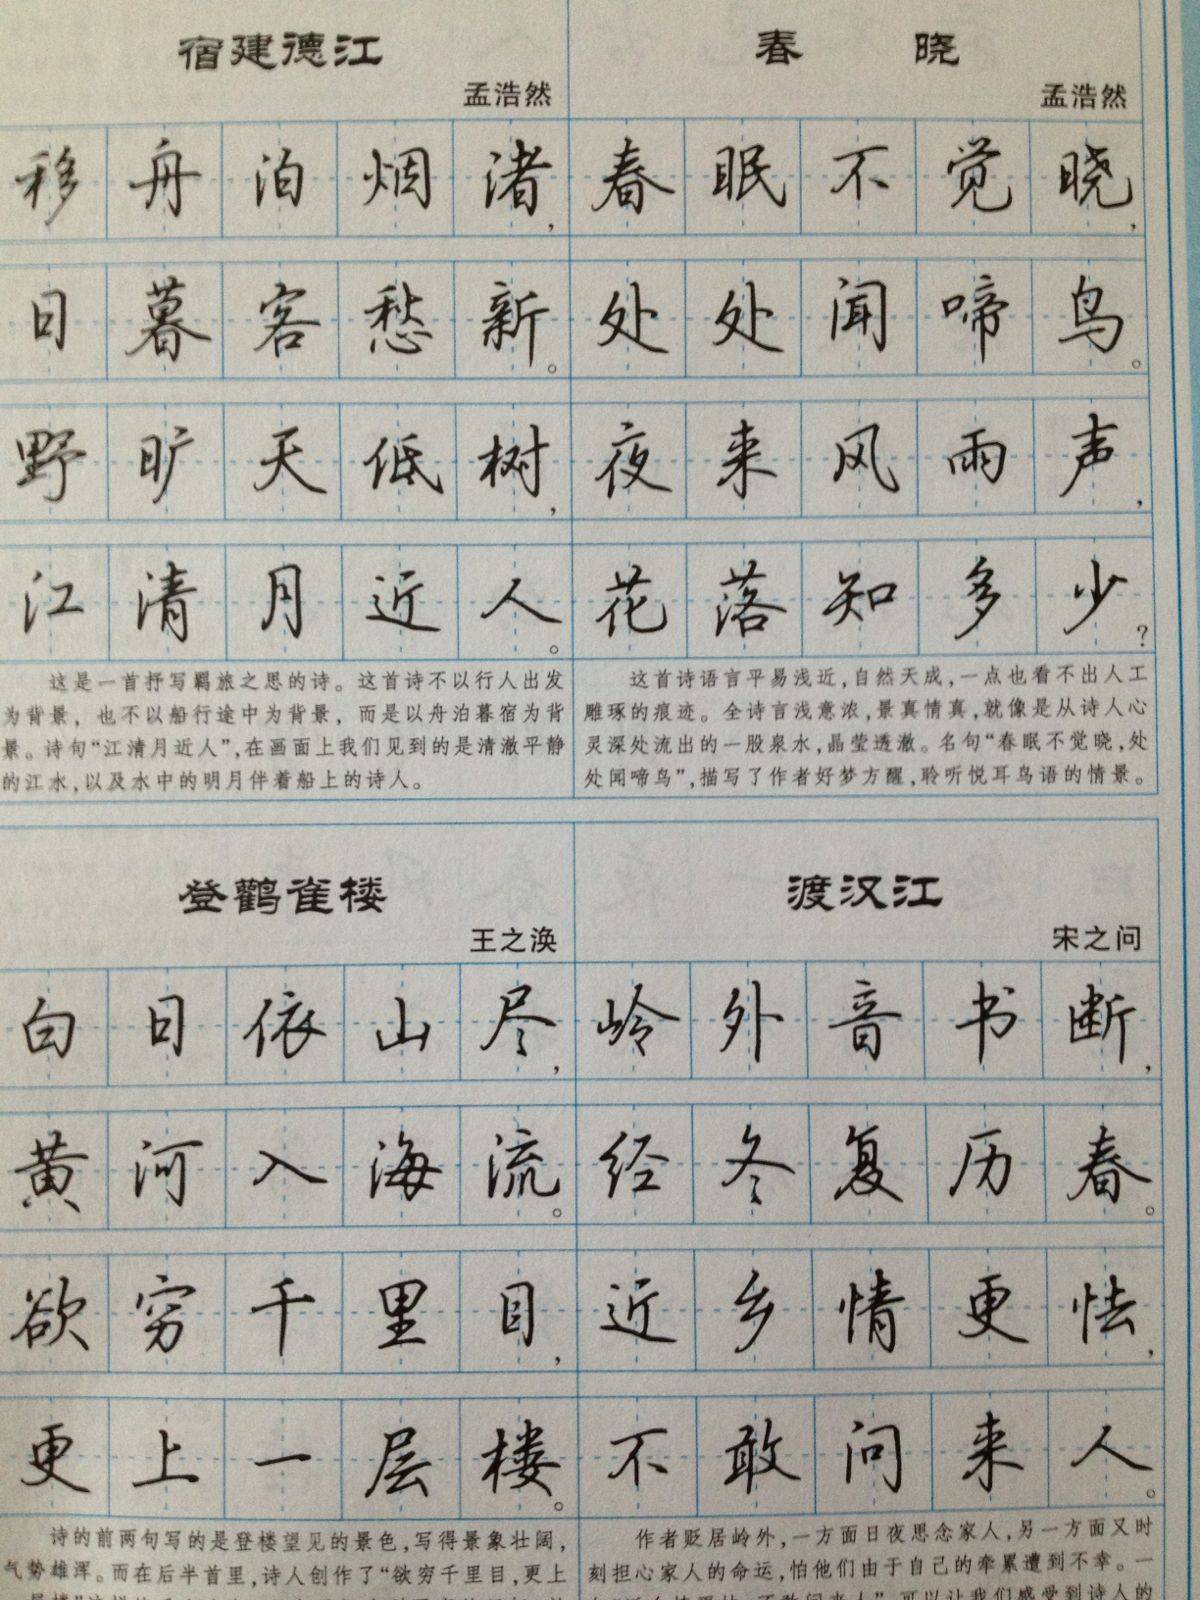 宿建德江
孟浩然
移舟泊烟渚，
日暮客愁新。
野旷天低树，
江清月近人。
这是一首抒写羁旅之思的诗。这首诗不以行人出发
为背景，也不以船行途中为背景，而是以舟泊暮宿为背
景。诗句“江清月近人”，在画面上我们见到的是清澈平静
的江水，以及水中的明月伴着船上的诗人。
春晓
孟浩然
春眠不觉晓，
处处闻啼鸟。
夜来风雨声，
花落知多少？
这首诗语言平易浅近，自然天成，一点也看不出人工
雕琢的痕迹。全诗言浅意浓，景真情真，就像是从诗人心
灵深处流出的一股泉水，晶莹透澈。名句“春眠不觉晓，处
处闻啼鸟”，描写了作者好梦方醒，聆听悦耳鸟语的情景。
登鹳雀楼
王之涣
白日依山尽，
黄河入海流。
欲穷千里目，
更上一层楼。
诗的前两句写的是登楼望见的景色，写得景象壮阔，
气势雄浑。而在后半首里，诗人创作了“欲穷千里目，更上
渡汉江
宋之问
岭外音书断，
经冬复历春。
近乡情更怯，
不敢问来人。
作者贬居岭外，一方面日夜思念家人，另一方面又时
刻担心家人的命运，怕他们由于自己的牵累遭到不幸。一